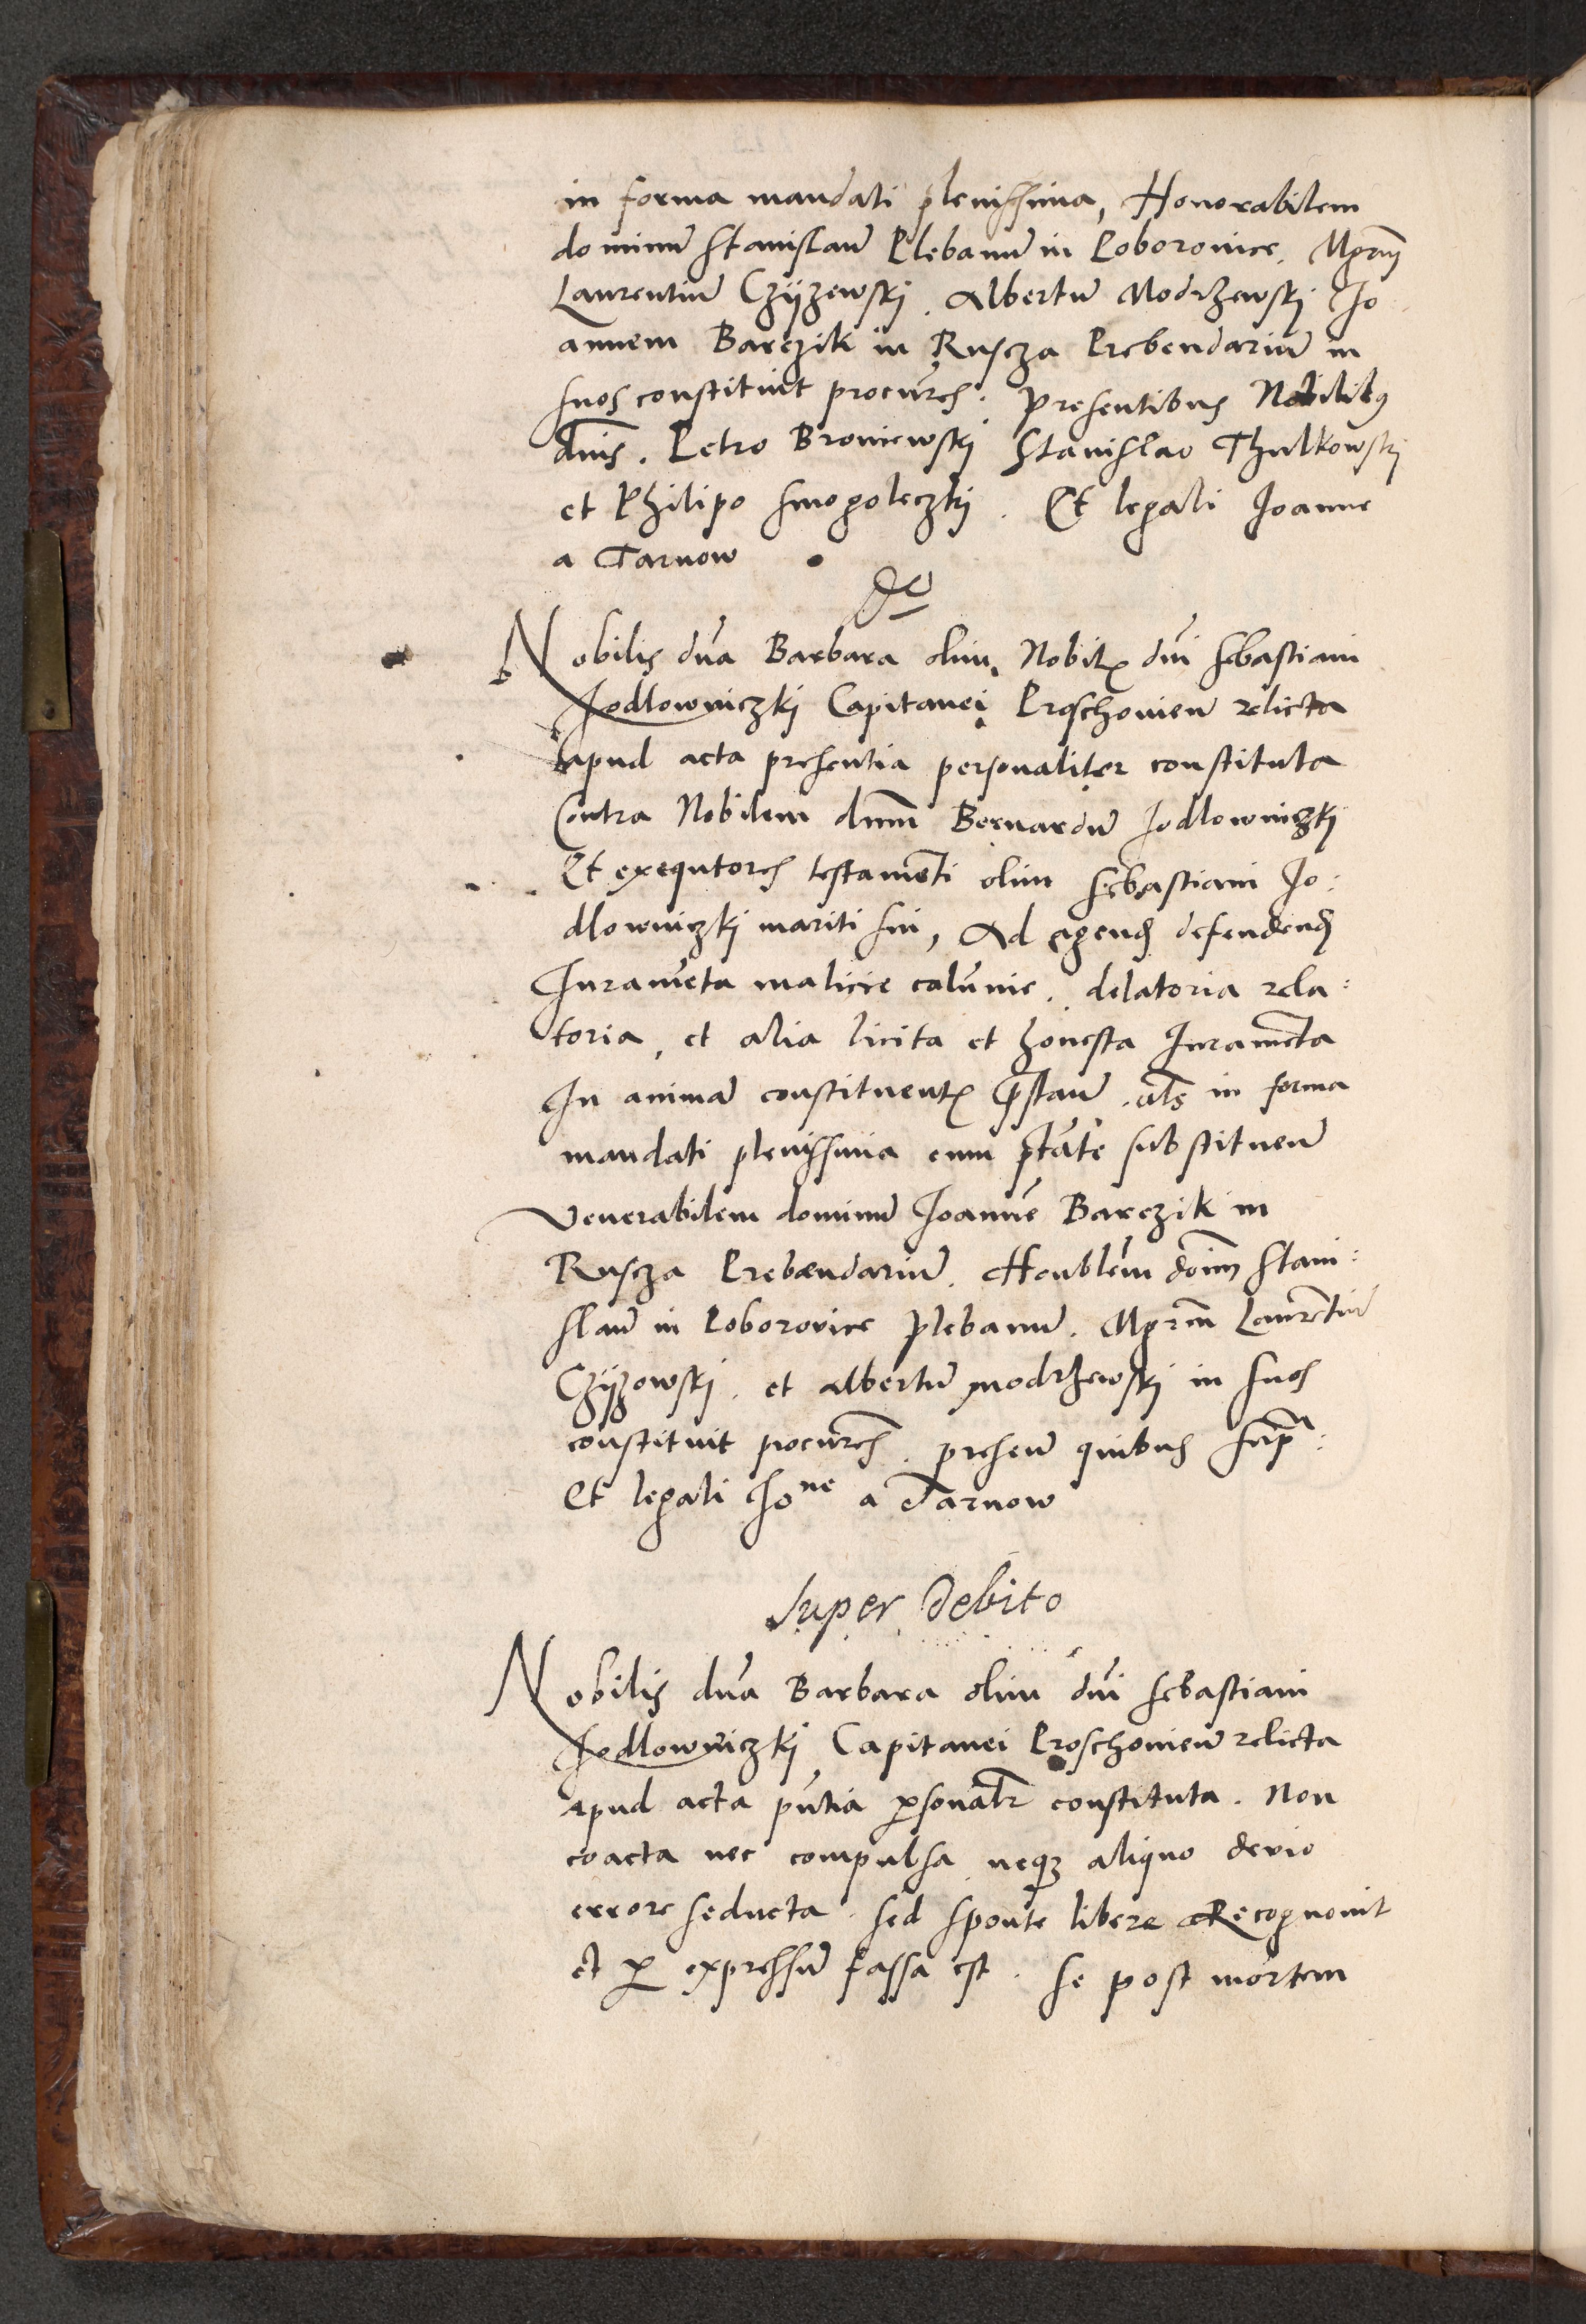 in forma mandati plenissima, Honorabilem
dominū Stanislaū Plebanū in Poborovice. Mgrm̄
Laurentiū Czÿzewskj. Albertū Modrzewskj Jo
annem Barczik in Ruscza Prebendariū in
suos constituit procurēs. presentibus Nobilibꝰ
dn̄is. Petro Broniewskj Stanislao Thulkowskj
et Philipo Smogoleczkj. Et legali Joanne
a Tarnow
Nobilis dn̄a Barbara olim Nobilꝭ dn̄i Sebastiani
Jodlowniczkj Capitanei Proschovien̄ relicta
apud acta presentia personaliter constituta
Contra Nobilem dnm̄ Bernardū Jodlowniczkj
Et exequtores testamēti olim Sebastiani Jo:
dlowniczkj mariti sui, Ad agend defendend
Juramēta malicie calūnie. delatoria rela:
toria, et alia licita et honesta Juramēta
In animā constituentꝭ p̄stan̄. als in forma
mandati plenissima cum ptāte substituen̄
Venerabilem dominū Joannē Barczik in
Ruscza Prebendariū. Honblēm doīm Stani:
slaū in Poborovice plebanū. Mgrm̄ Laurētiū
Czÿzowskj. et albertū modrzewskj in suos
constituit procurēs. presen̄ quibus sup̄ᵃ:
Et legali Joⁿᵉ a Tarnow
Super Debito
Nobilis dn̄a Barbara olim dn̄i Sebastiani
Jodlowniczkj Capitanei Proschovien̄ relicta
apud acta pn̄tia ꝑsonalr̄ constituta. Non
coacta nec compulsa neqꝫ aliquo devio
errore seducta. sed sponte libere Recognovit
et ꝑ expressū fassa est. se post mortem